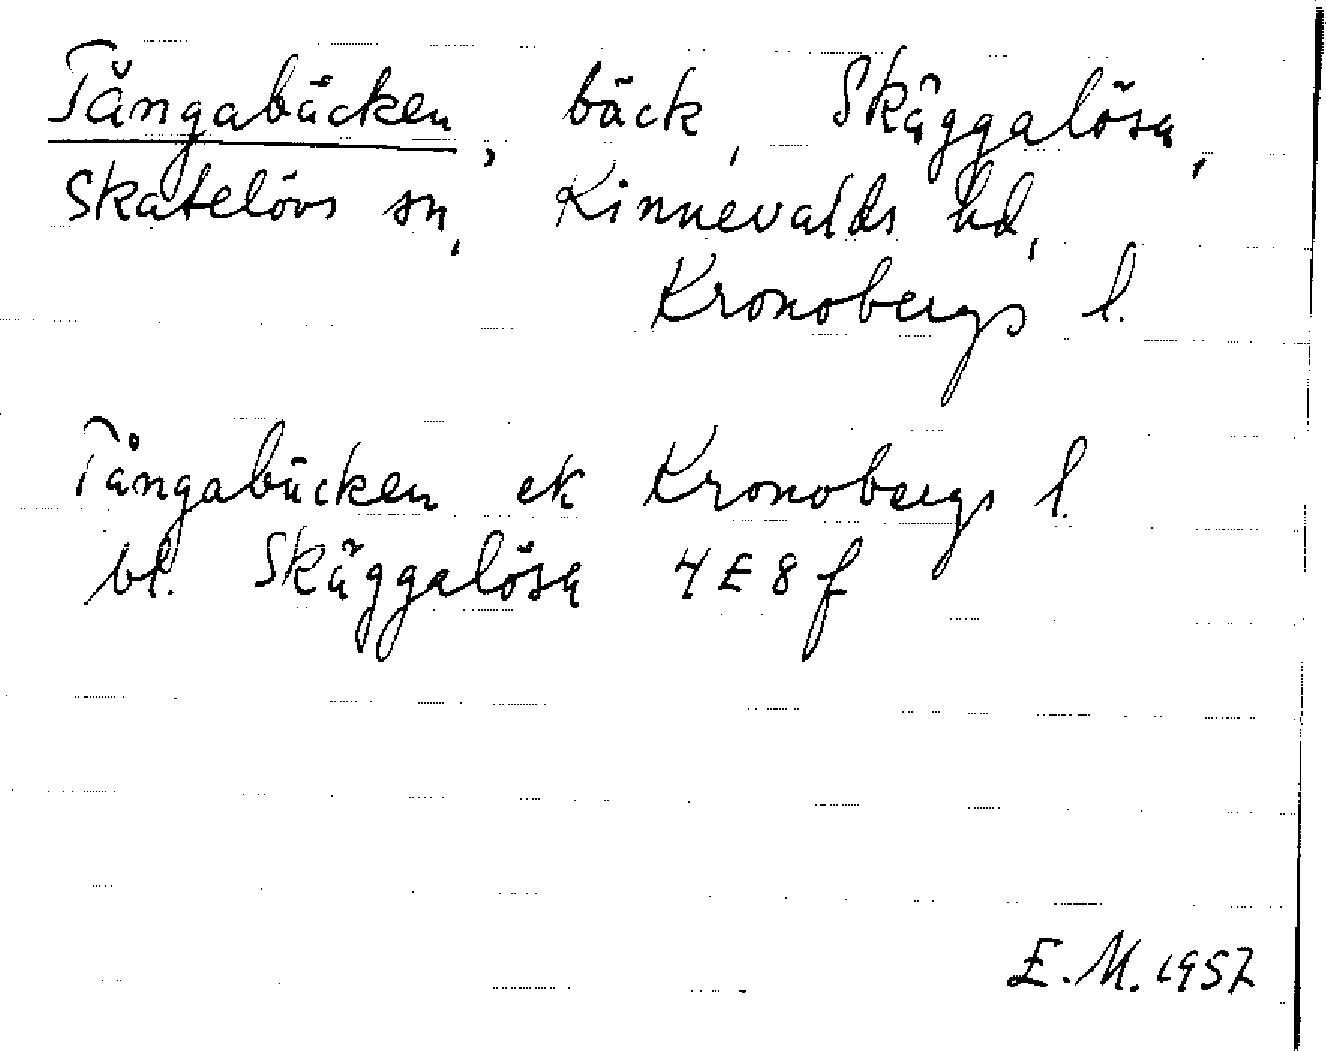 Tångabäcken, bäck, Skäggalösa,
Skatelövs sn, Kinnevalds hd,
Kronobergs l.
Tångabäcken ek Kronobergs l.
bl. Skäggalösa 4E8f
E.M. 1957